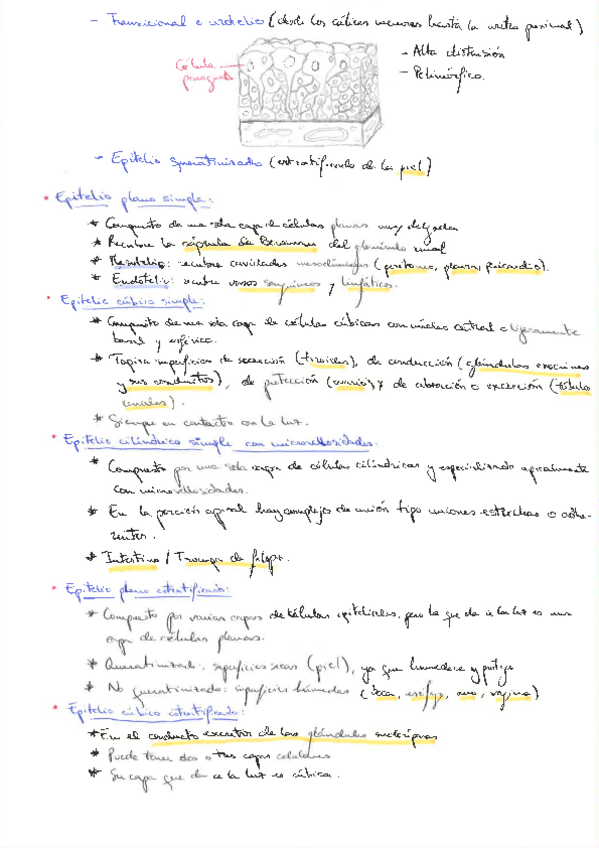 - Transicional o urotelio (desde los cálices menores hasta la uretra proximal)
- Alta distensión
- Polimórfico.
Célula
paraguas
- Epitelio queratinizado (estratificado de la piel)
• Epitelio plano simple:
* Compuesto de una sola capa de células planas muy delgadas
* Recubre la cápsula de Bowman del glomérulo renal
* Mesotelio: recubre cavidades mesodérmicas (peritoneo, pleura, pericardio).
* Endotelio: recubre vasos sanguíneos y linfáticos.
• Epitelio cúbico simple:
* Compuesto de una sola capa de células cúbicas con núcleo central o ligeramente
basal y esférico.
* Tapiza superficies de secreción (tiroides), de conducción (glándulas exocrinas
y sus conductos), de protección (ovario) y de absorción o excreción (túbulos
renales).
* Siempre en contacto con la luz.
• Epitelio cilíndrico simple con microvellosidades:
* Compuesto por una sola capa de células cilíndricas y especializado apicalmente
con microvellosidades.
* En la porción apical hay complejos de unión tipo uniones estrechas o ocluyentes.
* Intestino / Trompa de falopi.
• Epitelio plano estratificado:
* Compuesto por varias capas de células epiteliales, pero la que da a la luz es una
capa de células planas.
* Queratinizado: superficies secas (piel), ya que humedece y protege
* No queratinizado: superficies húmedas (boca, esófago, ano, vagina)
• Epitelio cúbico estratificado:
* En el conducto excretor de las glándulas sudoríparas
* Puede tener dos o tres capas celulares
* Su capa que da a la luz es cúbica.